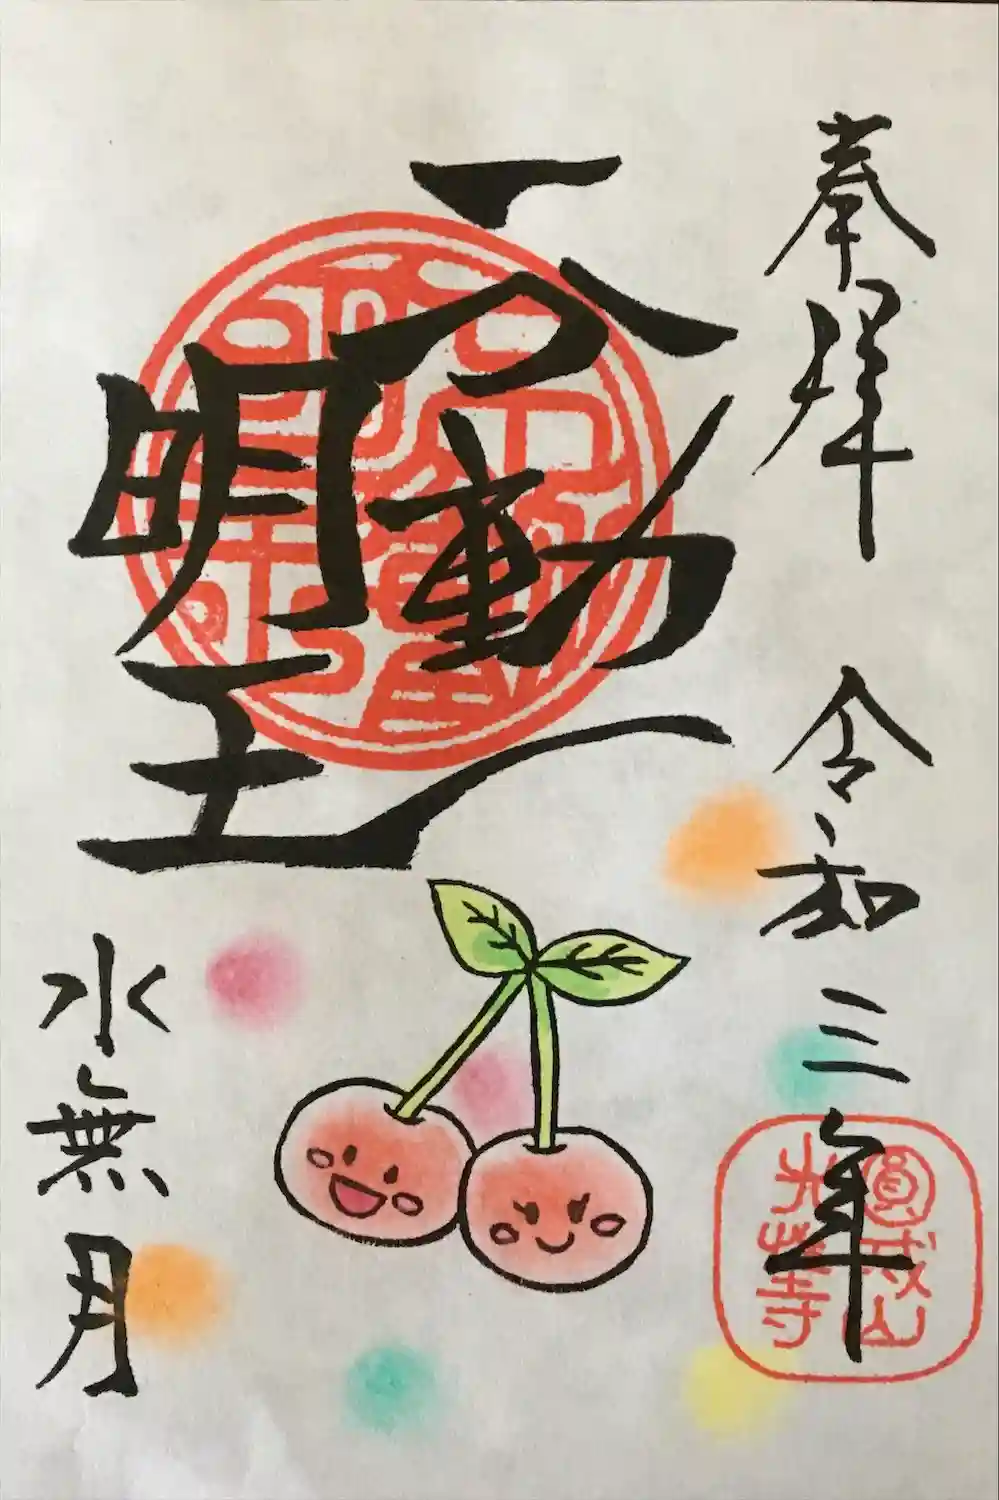 奉拝 令和三年
不動
明王
水無月